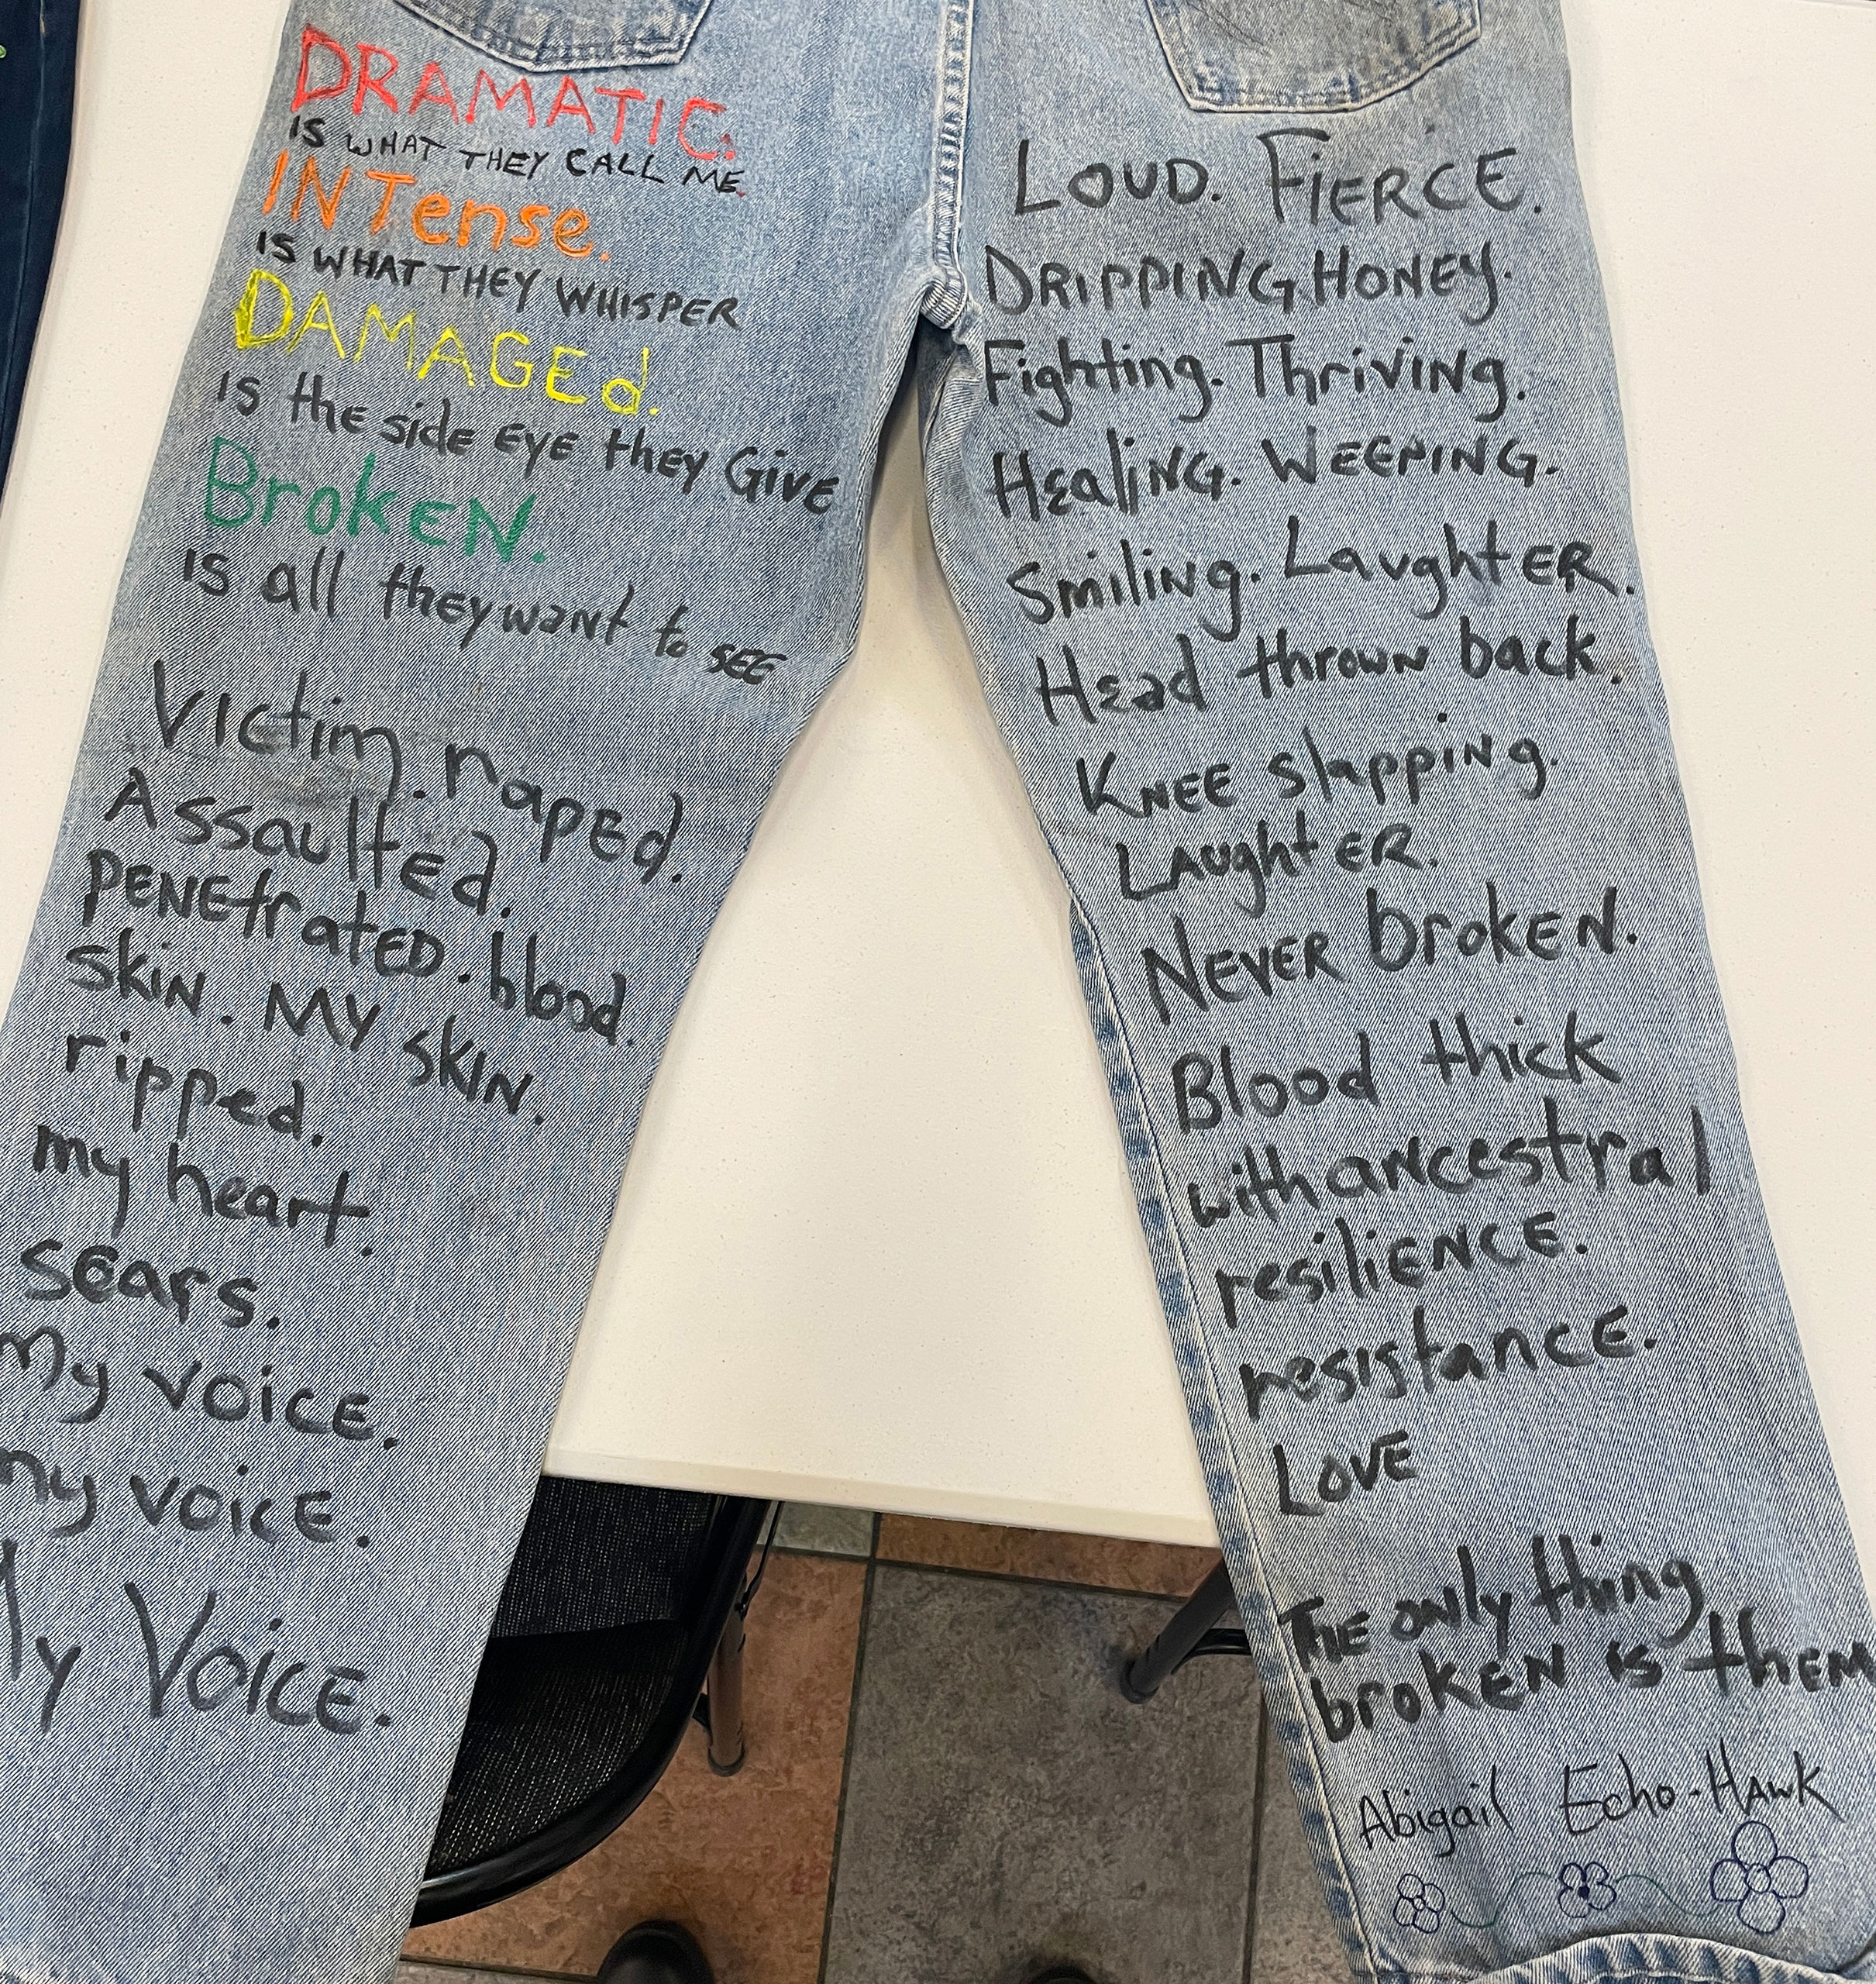 DRAMATIC.
IS WHAT THEY CALL ME.
INTense.
IS WHAT THEY WHISPER
DAMAGEd.
is the side EYE they GIVE
BrokEN.
is all they want to SEE
Victim. rapEd.
Assaulted.
PENEtratED. blood.
skiN. MY SKIN.
ripped.
my heart.
scars.
My voicE.
my voicE.
My VoicE.
LOUD. FIERCE.
DRIPPING HONEY.
Fighting. Thriving.
HEaliNG. WEEPING.
Smiling. LaughtER.
HEad thrown back.
KNEE slapping.
LAughtER.
NEVER brokEN.
Blood thick
with ancestral
resiliENCE.
resistancE.
LovE
THE only thing
brokEN is thEM
Abigail Echo-Hawk